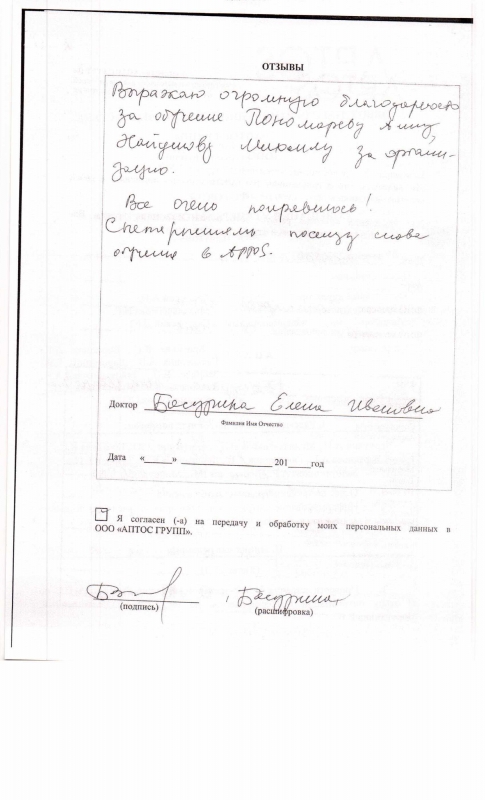 ОТЗЫВЫ
Выражаю огромную благодарность
за обучение Пономареву Анну,
Найденову Михаилу за органи-
зацию.
Все очень понравилось!
С нетерпением посещу снова
обучения в APTOS.
Доктор Басурина Елена Ивановна
Фамилия Имя Отчество
Дата «____» ____________ 201____год
Я согласен (-а) на передачу и обработку моих персональных данных в
ООО «АПТОС ГРУПП».
Басурина
(подпись) (расшифровка)